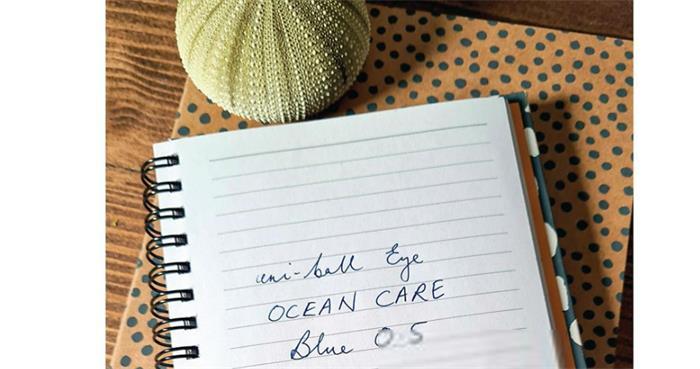 uni-ball Eye
OCEAN CARE
Blue 0.5